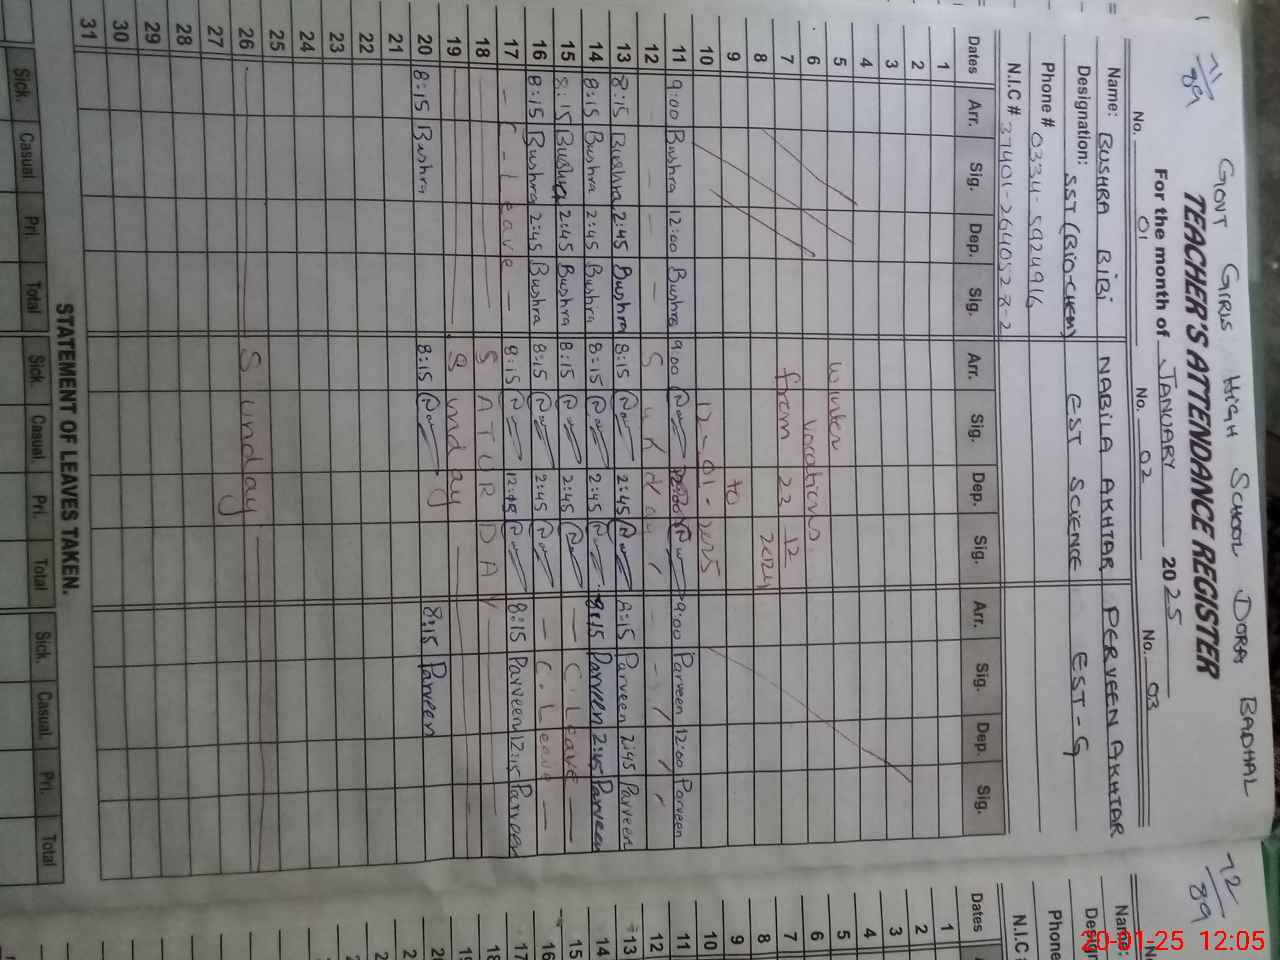 71/89
GOVT GIRLS HIGH SCHOOL DORA BADHAL
TEACHER'S ATTENDANCE REGISTER
For the month of JANUARY 2025
No. 01 No. 02 No. 03
Name: BUSHRA BIBI NABILA AKHTAR PERVEEN AKHTAR
Designation: SST (BIO-CHEM) EST SCIENCE EST-G
Phone # 0334-5924916
N.I.C #
Dates Arr. Sig. Dep. Sig. Arr. Sig. Dep. Sig. Arr. Sig. Dep. Sig.
1
2
3
4
5 Winter
6 Vacations
7 from 23 12
8 2024
9 to
10 12-01-2025
11 9:00 Bushra 12:00 Bushra 9:00 9:00 Parveen 12:00 Parveen
12 Sunday
13 8:15 Bushra 2:45 Bushra 8:15 2:45 8:15 Parveen 2:45 Parveen
14 8:15 Bushra 2:45 Bushra 8:15 2:45 8:15 Parveen 2:45 Parveen
15 8:15 Bushra 2:45 Bushra 8:15 2:45 C. Leave
16 8:15 Bushra 2:45 Bushra 8:15 2:45 C. Leave
17 - C - Leave - 8:15 12:15 8:15 Parveen 12:15 Parveen
18 SATURDAY
19 Sunday
20 8:15 Bushra 8:15 8:15 Parveen
21
22
23
24
25
26 Sunday
27
28
29
30
31
STATEMENT OF LEAVES TAKEN.
Sick. Casual Pri. Total Sick. Casual. Pri. Total Sick. Casual. Pri. Total
72/89
No
Name:
Design
Phone
N.I.C #
Dates
1
2
3
4
5
6
7
8
9
10
11
12
13
14
15
16
17
18
20-01-25 12:05